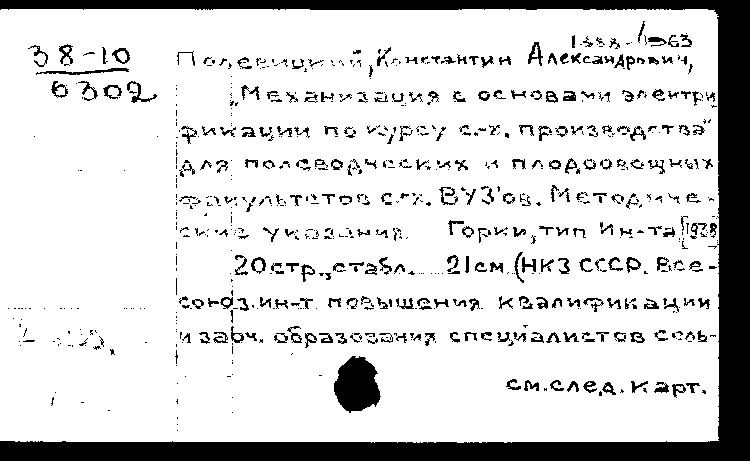 38-10
6302
1888-1963
Полевицкий, Константин Александрович,
"Механизация с основами электри
фикации по курсу с.-х. производства"
для полеводческих и плодоовощных
факультетов с.-х. ВУЗ'ов. Методиче-
ские указания Горки, тип Ин-та [1938
20 стр., с табл. 21 см (НКЗ СССР. Все-
союз. ин-т повышения квалификации
и заоч. образования специалистов сель-
см. след. карт.